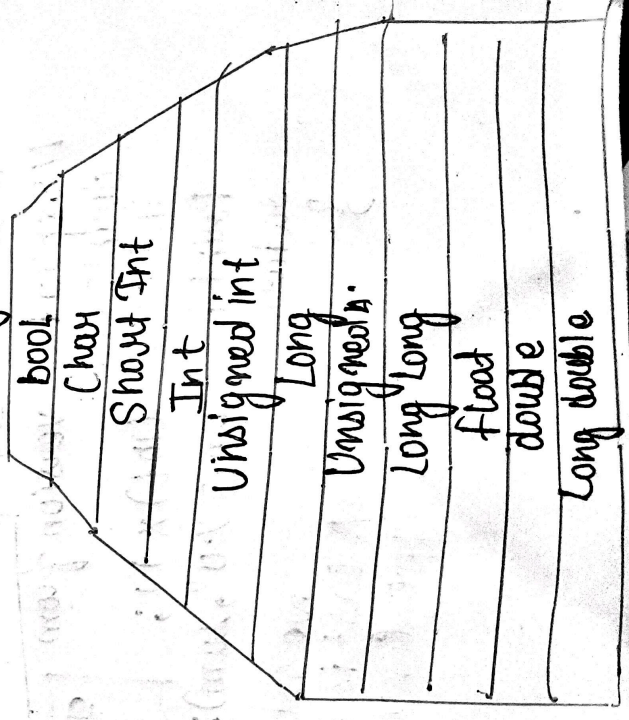 bool
Char
Short Int
Int
Unsigned int
Long
Unsigned
Long Long
float
double
Long double